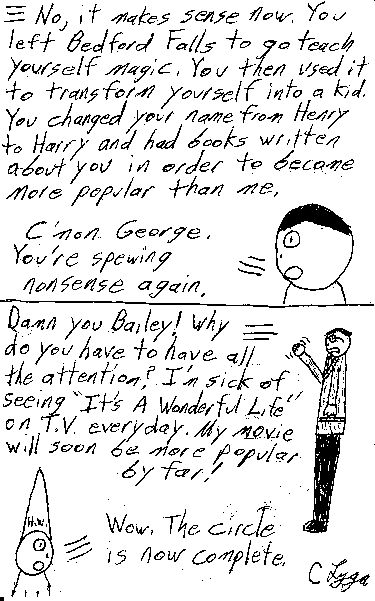 No, it makes sense now. You
left Bedford Falls to go teach
yourself magic. You then used it
to transform yourself into a kid.
You changed your name from Henry
to Harry and had books written
about you in order to become
more popular than me.
C'mon George.
You're spewing
nonsense again.
Damn you Bailey! Why
do you have to have all
the attention? I'm sick of
seeing "It's A Wonderful Life"
on T.V. everyday. My movie
will soon be more popular
by far!
H.W.
Wow. The circle
is now complete.
C Lyga